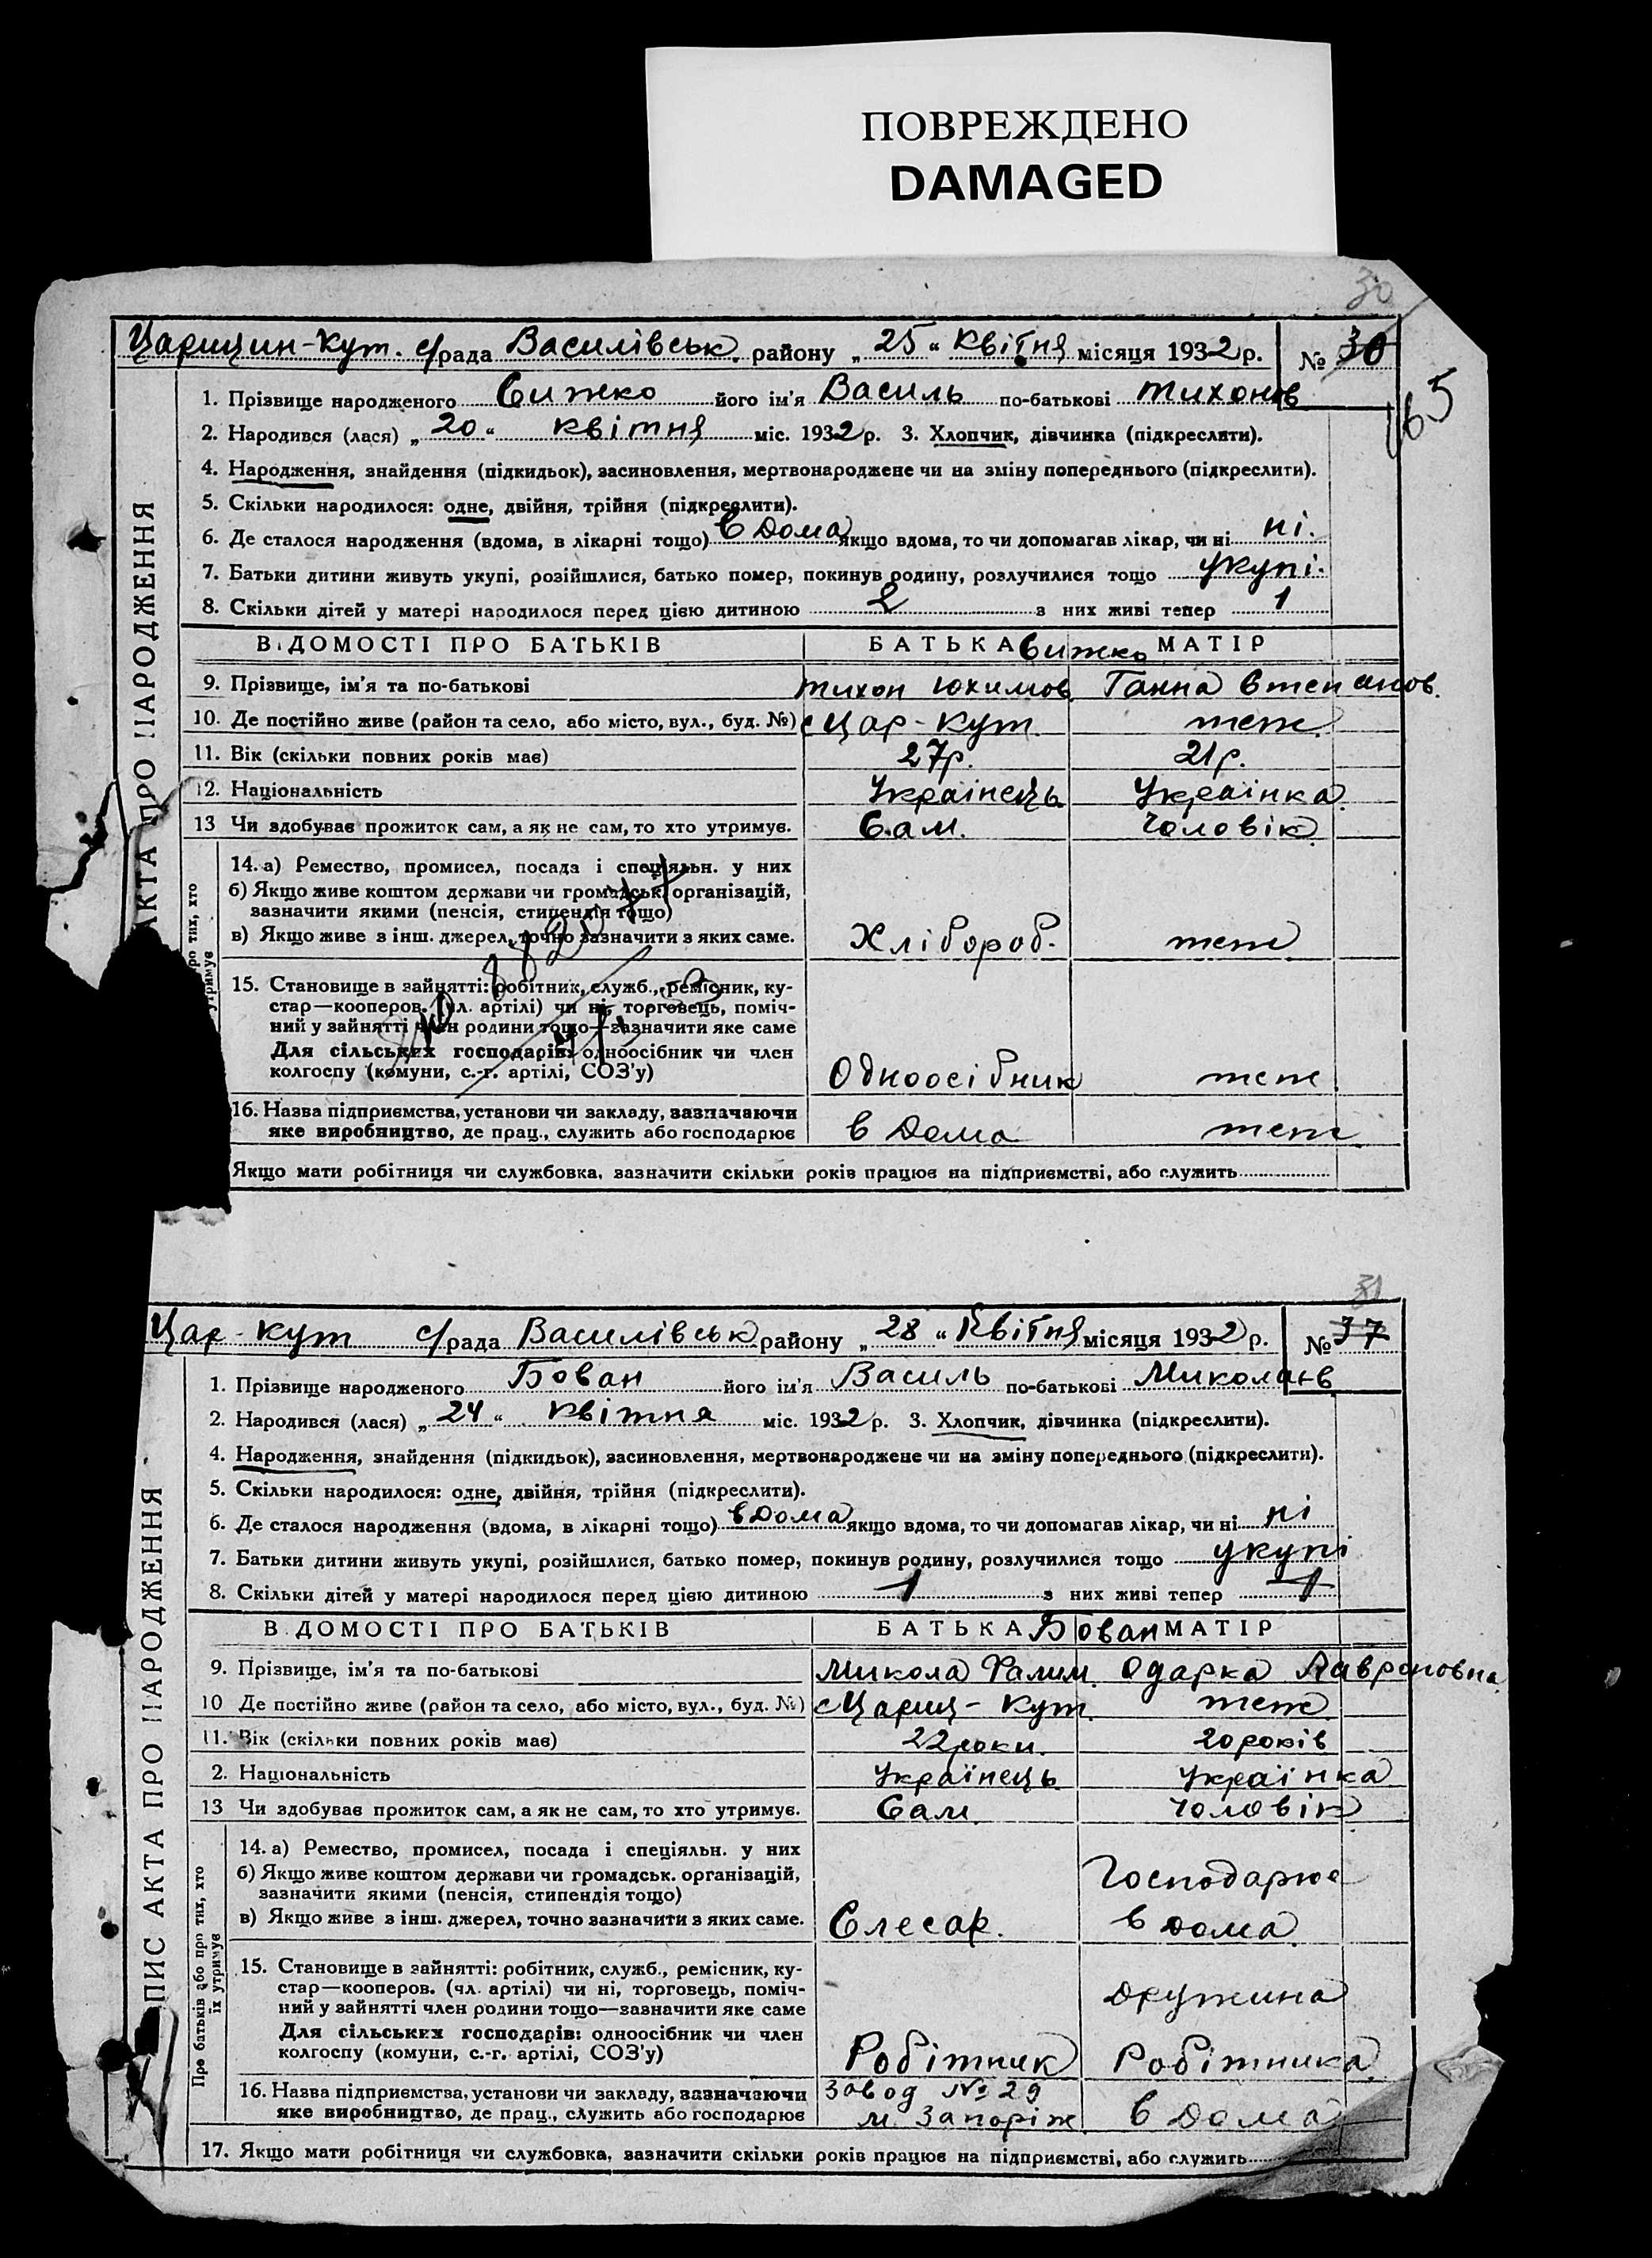 ПОВРЕЖДЕНО
DAMAGED
30
Царицин-Кут. с/рада Василівськ. району „ 25 “ Квітня місяця 1932 р. № 30
65
АКТА ПРО НАРОДЖЕННЯ
1. Прізвище народженого Сижко його ім'я Василь по-батькові Тихонов
2. Народився (лася) „ 20 “ квітня міс. 1932 р. 3. Хлопчик, дівчинка (підкреслити).
4. Народження, знайдення (підкидьок), засиновлення, мертвонароджене чи на зміну попереднього (підкреслити).
5. Скільки народилося: одне, двійня, трійня (підкреслити).
6. Де сталося народження (вдома, в лікарні тощо) в Дома якщо вдома, то чи допомагав лікар, чи ні ні.
7. Батьки дитини живуть укупі, розійшлися, батько помер, покинув родину, розлучилися тощо укупі.
8. Скільки дітей у матері народилося перед цією дитиною 2 з них живі тепер 1
ВІДОМОСТІ ПРО БАТЬКІВ БАТЬКА Сижко МАТІР
9. Прізвище, ім'я та по-батькові Тихон Юхимов Ганна Степанов.
10. Де постійно живе (район та село, або місто, вул., буд. №) с Цар-Кут. теж.
11. Вік (скільки повних років має) 27р. 21р.
12. Національність Українець Українка.
13 Чи здобував прожиток сам, а як не сам, то хто утримує. Сам. Чоловік
ро тих, хто
утримує
14. а) Ремество, промисел, посада і спеціяльн. у них
б) Якщо живе коштом держави чи громадськ. організацій,
зазначити якими (пенсія, стипендія тощо)
в) Якщо живе з інш. джерел, точно зазначити з яких саме. Хлібороб. теж
15. Становище в зайнятті: робітник, служб., ремісник, ку-
стар—кооперов. (чл. артілі) чи ні, торговець, поміч-
ний у зайнятті член родини тощо—зазначити яке саме
Для сільських господарів: одноосібник чи член
колгоспу (комуни, с.-г. артілі, СОЗ'у) Одноосібник теж.
16. Назва підприємства, установи чи закладу, зазначаючи
яке виробництво, де прац., служить або господарює в Дома теж
Якщо мати робітниця чи службовка, зазначити скільки років працює на підприємстві, або служить
31
Цар-Кут с/рада Василівськ району „ 28 “ Квітня місяця 1932 р. № 37
ПИС АКТА ПРО НАРОДЖЕННЯ
1. Прізвище народженого Бован його ім'я Василь по-батькові Миколаів
2. Народився (лася) „ 24 “ квітня міс. 1932 р. 3. Хлопчик, дівчинка (підкреслити).
4. Народження, знайдення (підкидьок), засиновлення, мертвонароджене чи на зміну попереднього (підкреслити).
5. Скільки народилося: одне, двійня, трійня (підкреслити).
6. Де сталося народження (вдома, в лікарні тощо) в Дома якщо вдома, то чи допомагав лікар, чи ні ні
7. Батьки дитини живуть укупі, розійшлися, батько помер, покинув родину, розлучилися тощо укупі
8. Скільки дітей у матері народилося перед цією дитиною 1 з них живі тепер 1
В ДОМОСТІ ПРО БАТЬКІВ БАТЬКА Бован МАТІР
9. Прізвище, ім'я та по-батькові Микола Одарка
10 Де постійно живе (район та село, або місто, вул., буд. №) с Цариц-Кут. теж
11. Вік (скільки повних років має) 22 роки. 20 років
2. Національність Українець Українка
13 Чи здобував прожиток сам, а як не сам, то хто утримує. Сам Чоловік
Про батьків або про тих, хто
їх утримує
14. а) Ремество, промисел, посада і спеціяльн. у них
б) Якщо живе коштом держави чи громадськ. організацій, Господарює
зазначити якими (пенсія, стипендія тощо)
в) Якщо живе з інш. джерел, точно зазначити з яких саме. Слесар. в дома.
15. Становище в зайнятті: робітник, служб., ремісник, ку-
стар—кооперов. (чл. артілі) чи ні, торговець, поміч- Дружина
ний у зайнятті член родини тощо—зазначити яке саме
Для сільських господарів: одноосібник чи член
колгоспу (комуни, с.-г. артілі, СОЗ'у) Робітник Робітника.
16. Назва підприємства, установи чи закладу, зазначаючи Завод № 29
яке виробництво, де прац., служить або господарює м. Запоріж в Дома
17. Якщо мати робітниця чи службовка, зазначити скільки років працює на підприємстві, або служить